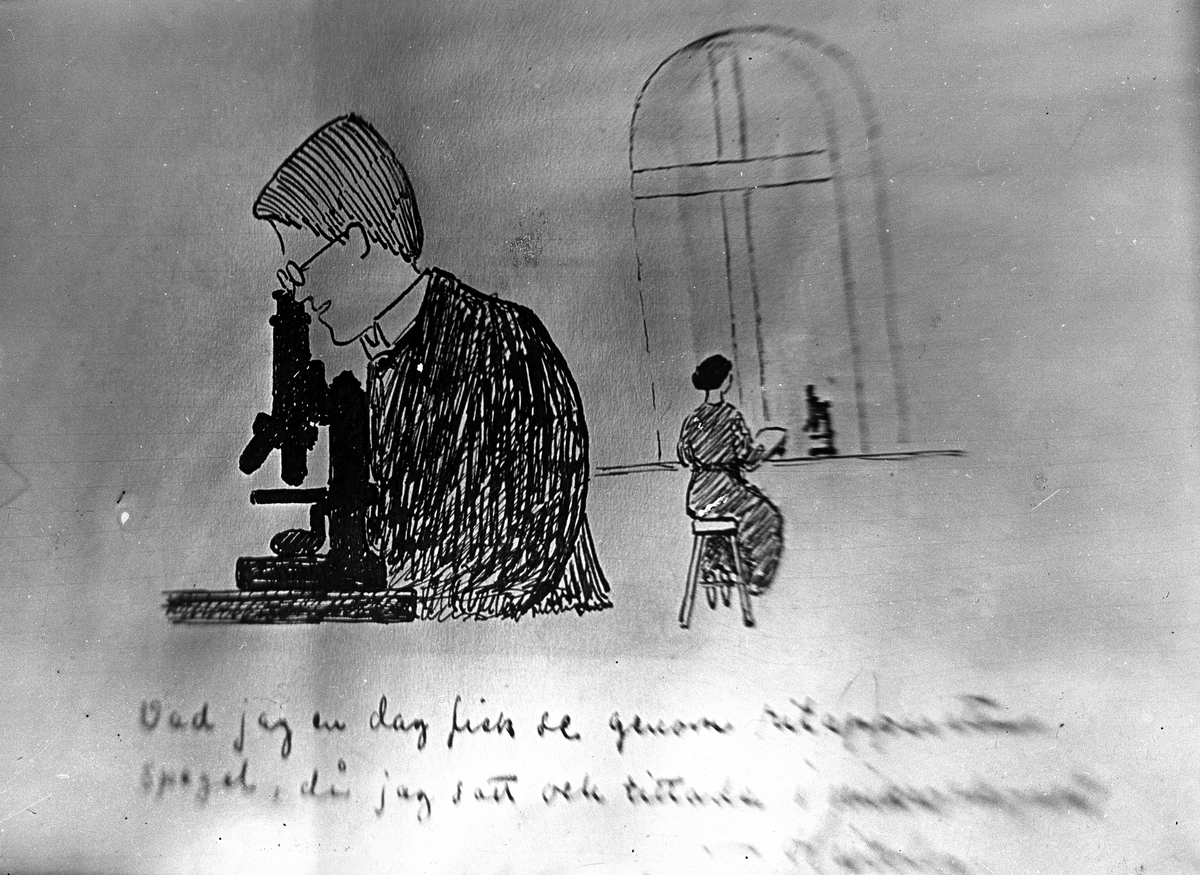 Vad jag en dag fick se genom ritapparatens
spegel, då jag satt och tittade i